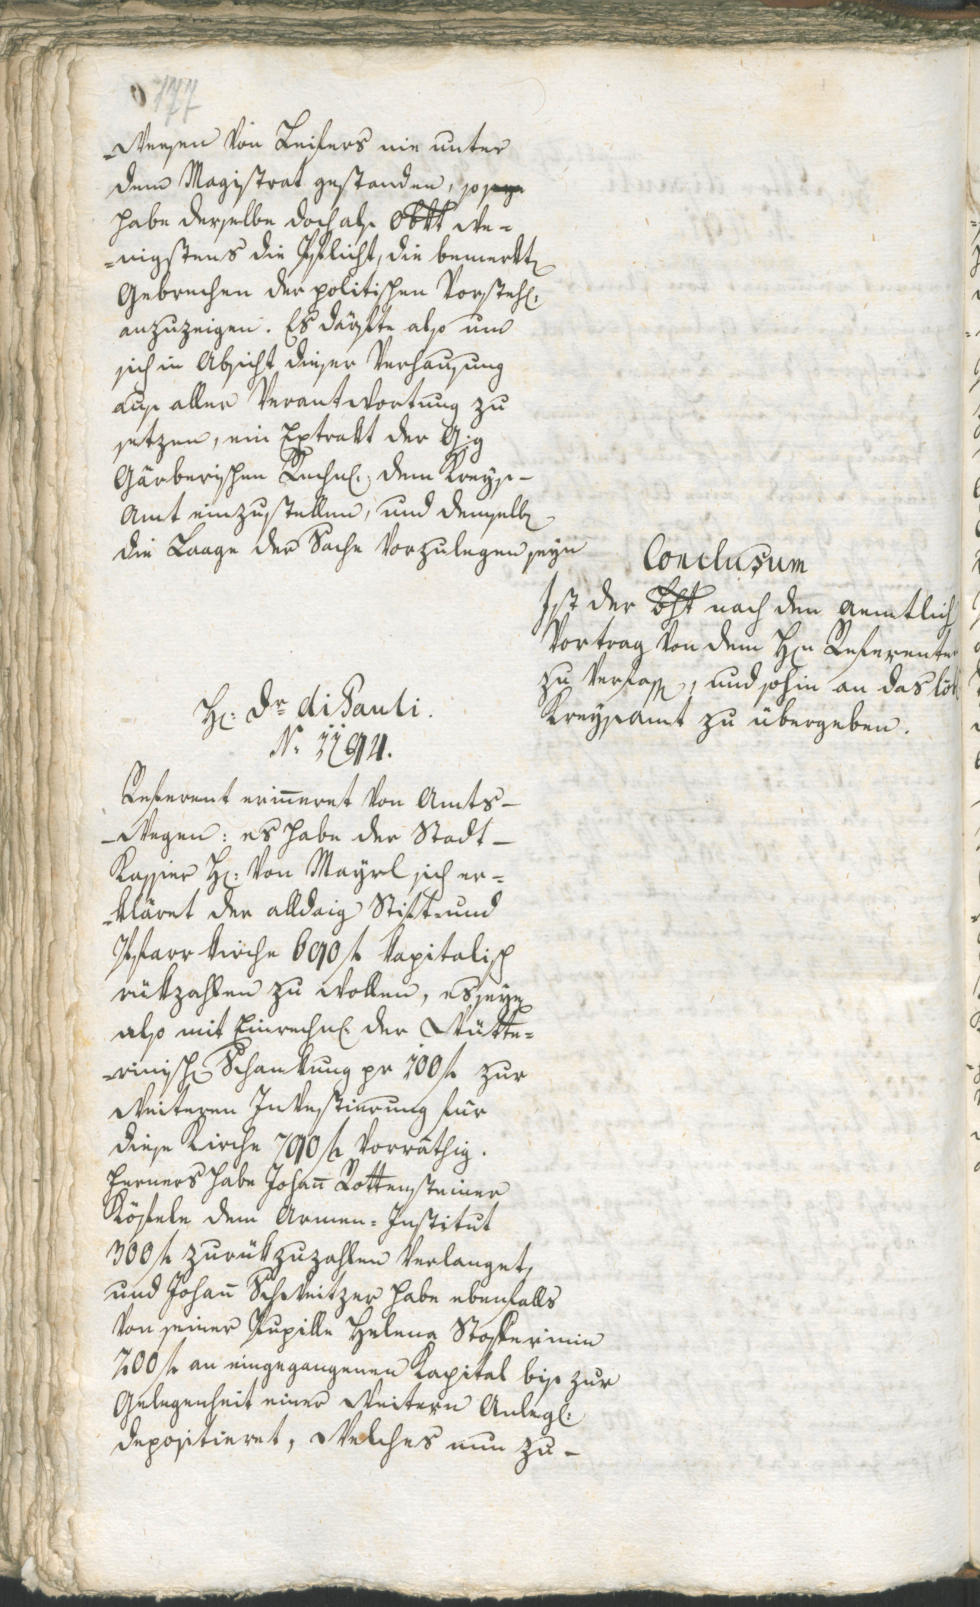 177
-Wesen von Leifers nie unter
dem Magistrat gestanden, so
habe derselbe doch als We=
=nigstens die Pflicht, die bemerkte
Gebrechen der politischen Vorsteh:
anzuzeigen. Es dörfte also um
sich in Absicht dieser Verhausung
aus aller Verantwortung zu
setzen, ein Extrakt der
Gärberischen Rechn: dem Kreys-
Amt einzustellen, und demselb
die Laage der Sache vorzulegen seyn
Conclusum
Ist der nach dem aemtlich
Vortrag von dem Hn Referenten
zu verfass, und sohin an das löb
Kreysamt zu übergeben.
H: Dr di Pauli.
N: 1194.
Referent erinneret von Amts-
-Wegen: es habe der Stadt-
Kassier H: von Mayrl sich er-
-kläret der alldaig Stift- und
Pfarrkirche 690 f Kapitalisch
rükzahlen zu wollen, es seye
also mit Einrechn: der
Schankung pr 100 f zur
Weiteren Investierung für
diese Kirche 790 f vorräthig.
Ferners habe Johann Rottensteiner
Kösele dem Armen-Institut
300 f zurükzuzahlen verlanget,
und Johann Schweitzer habe ebenfalls
von seiner Pupille Helena
200 f an eingegangenen Kapital bis zur
Gelegenheit einer Weitern Anleg:
depositieret, Welches nun zu-